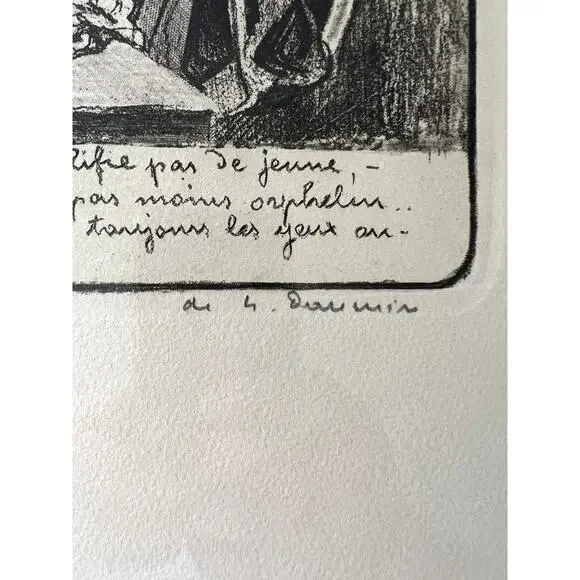 tifie pas de jeune, -
pas moins orphelin..
toujours les yeux au-
de h. Daumier